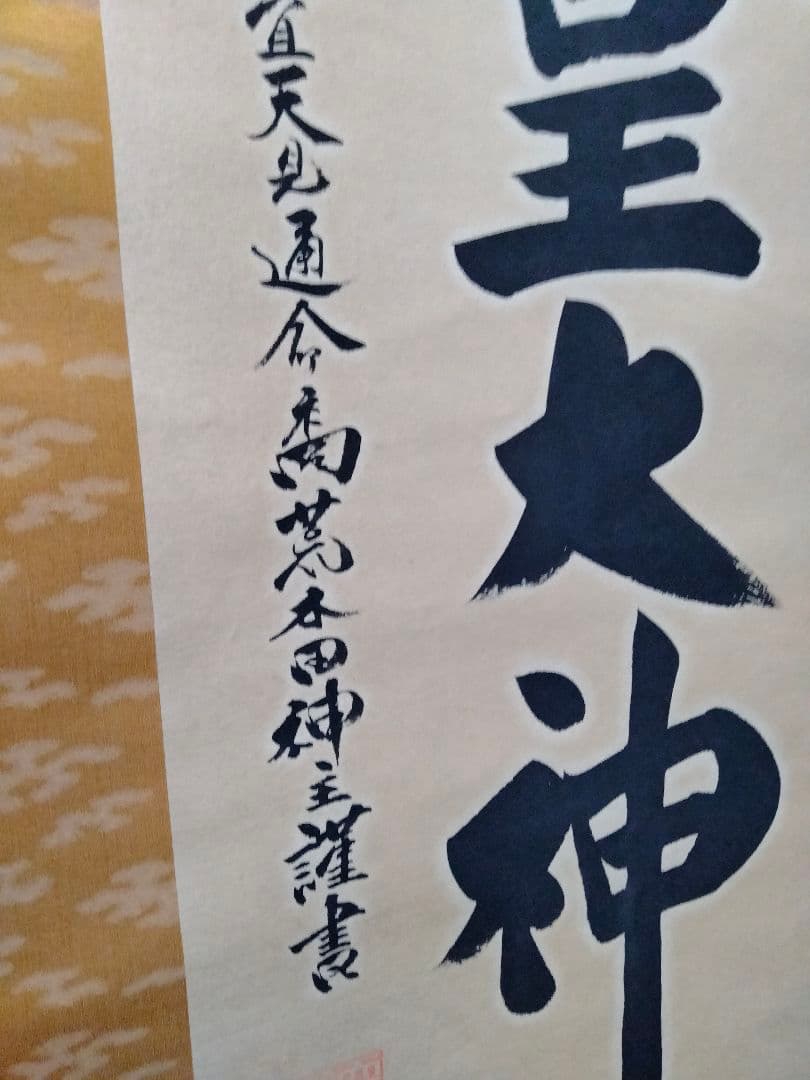 皇大神
宜天見通命裔荒木田神主謹書